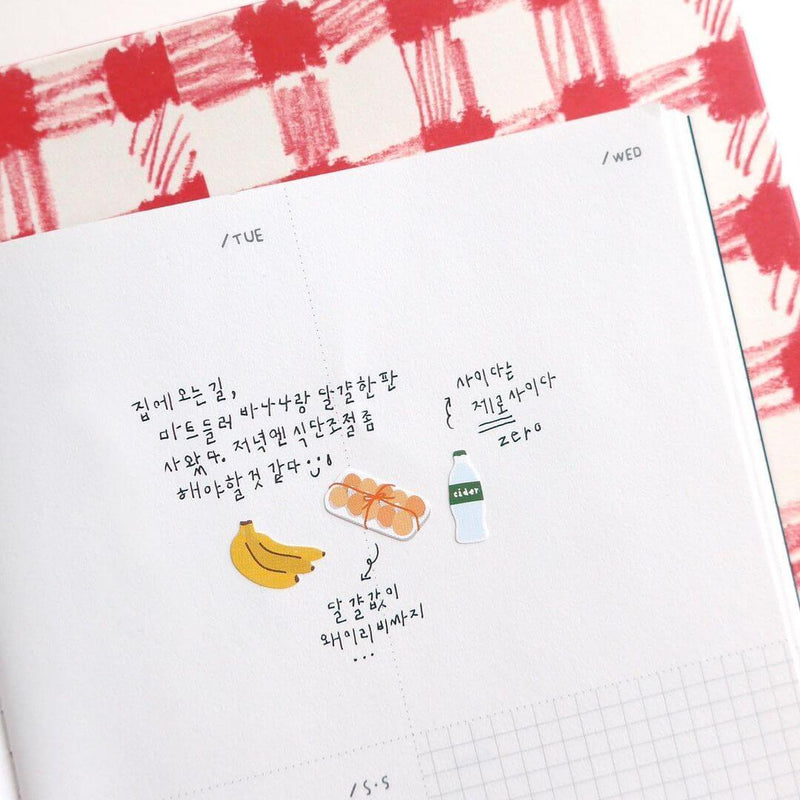 /TUE
/WED
집에오는길,
마트들러 바나나랑 달걀한판
사왔다. 저녁엔 식단조절좀
해야할것 같다
사이다는
제로사이다
zero
cider
달걀값이
왜이리비싸지
...
/S·S